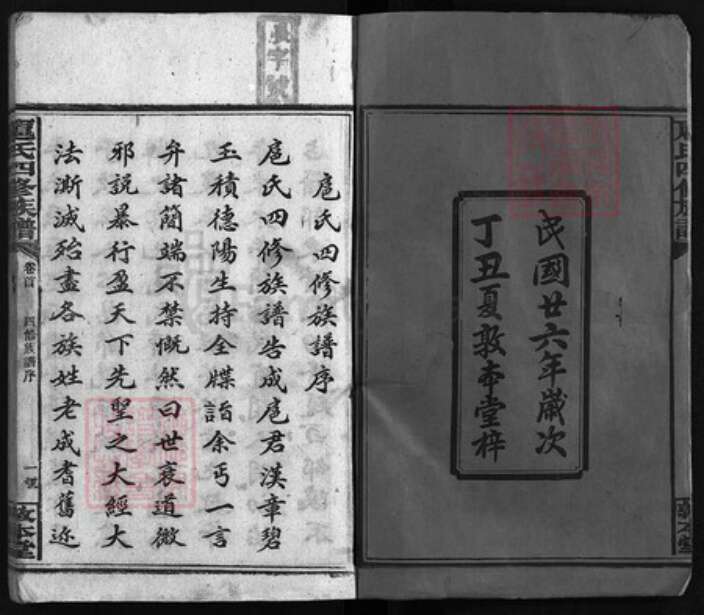 民國廿六年歲次
丁丑夏敦本堂梓
扈氏四修族譜序
扈氏四修族譜告成扈君漢章碧
玉積德陽生持全牒詣余丐一言
弁諸簡端不禁慨然曰世衰道微
邪說暴行盈天下先聖之大經大
法澌滅殆盡各族姓老成耆舊近
扈氏四修族譜
卷首
四修族譜序
一號
敦本堂